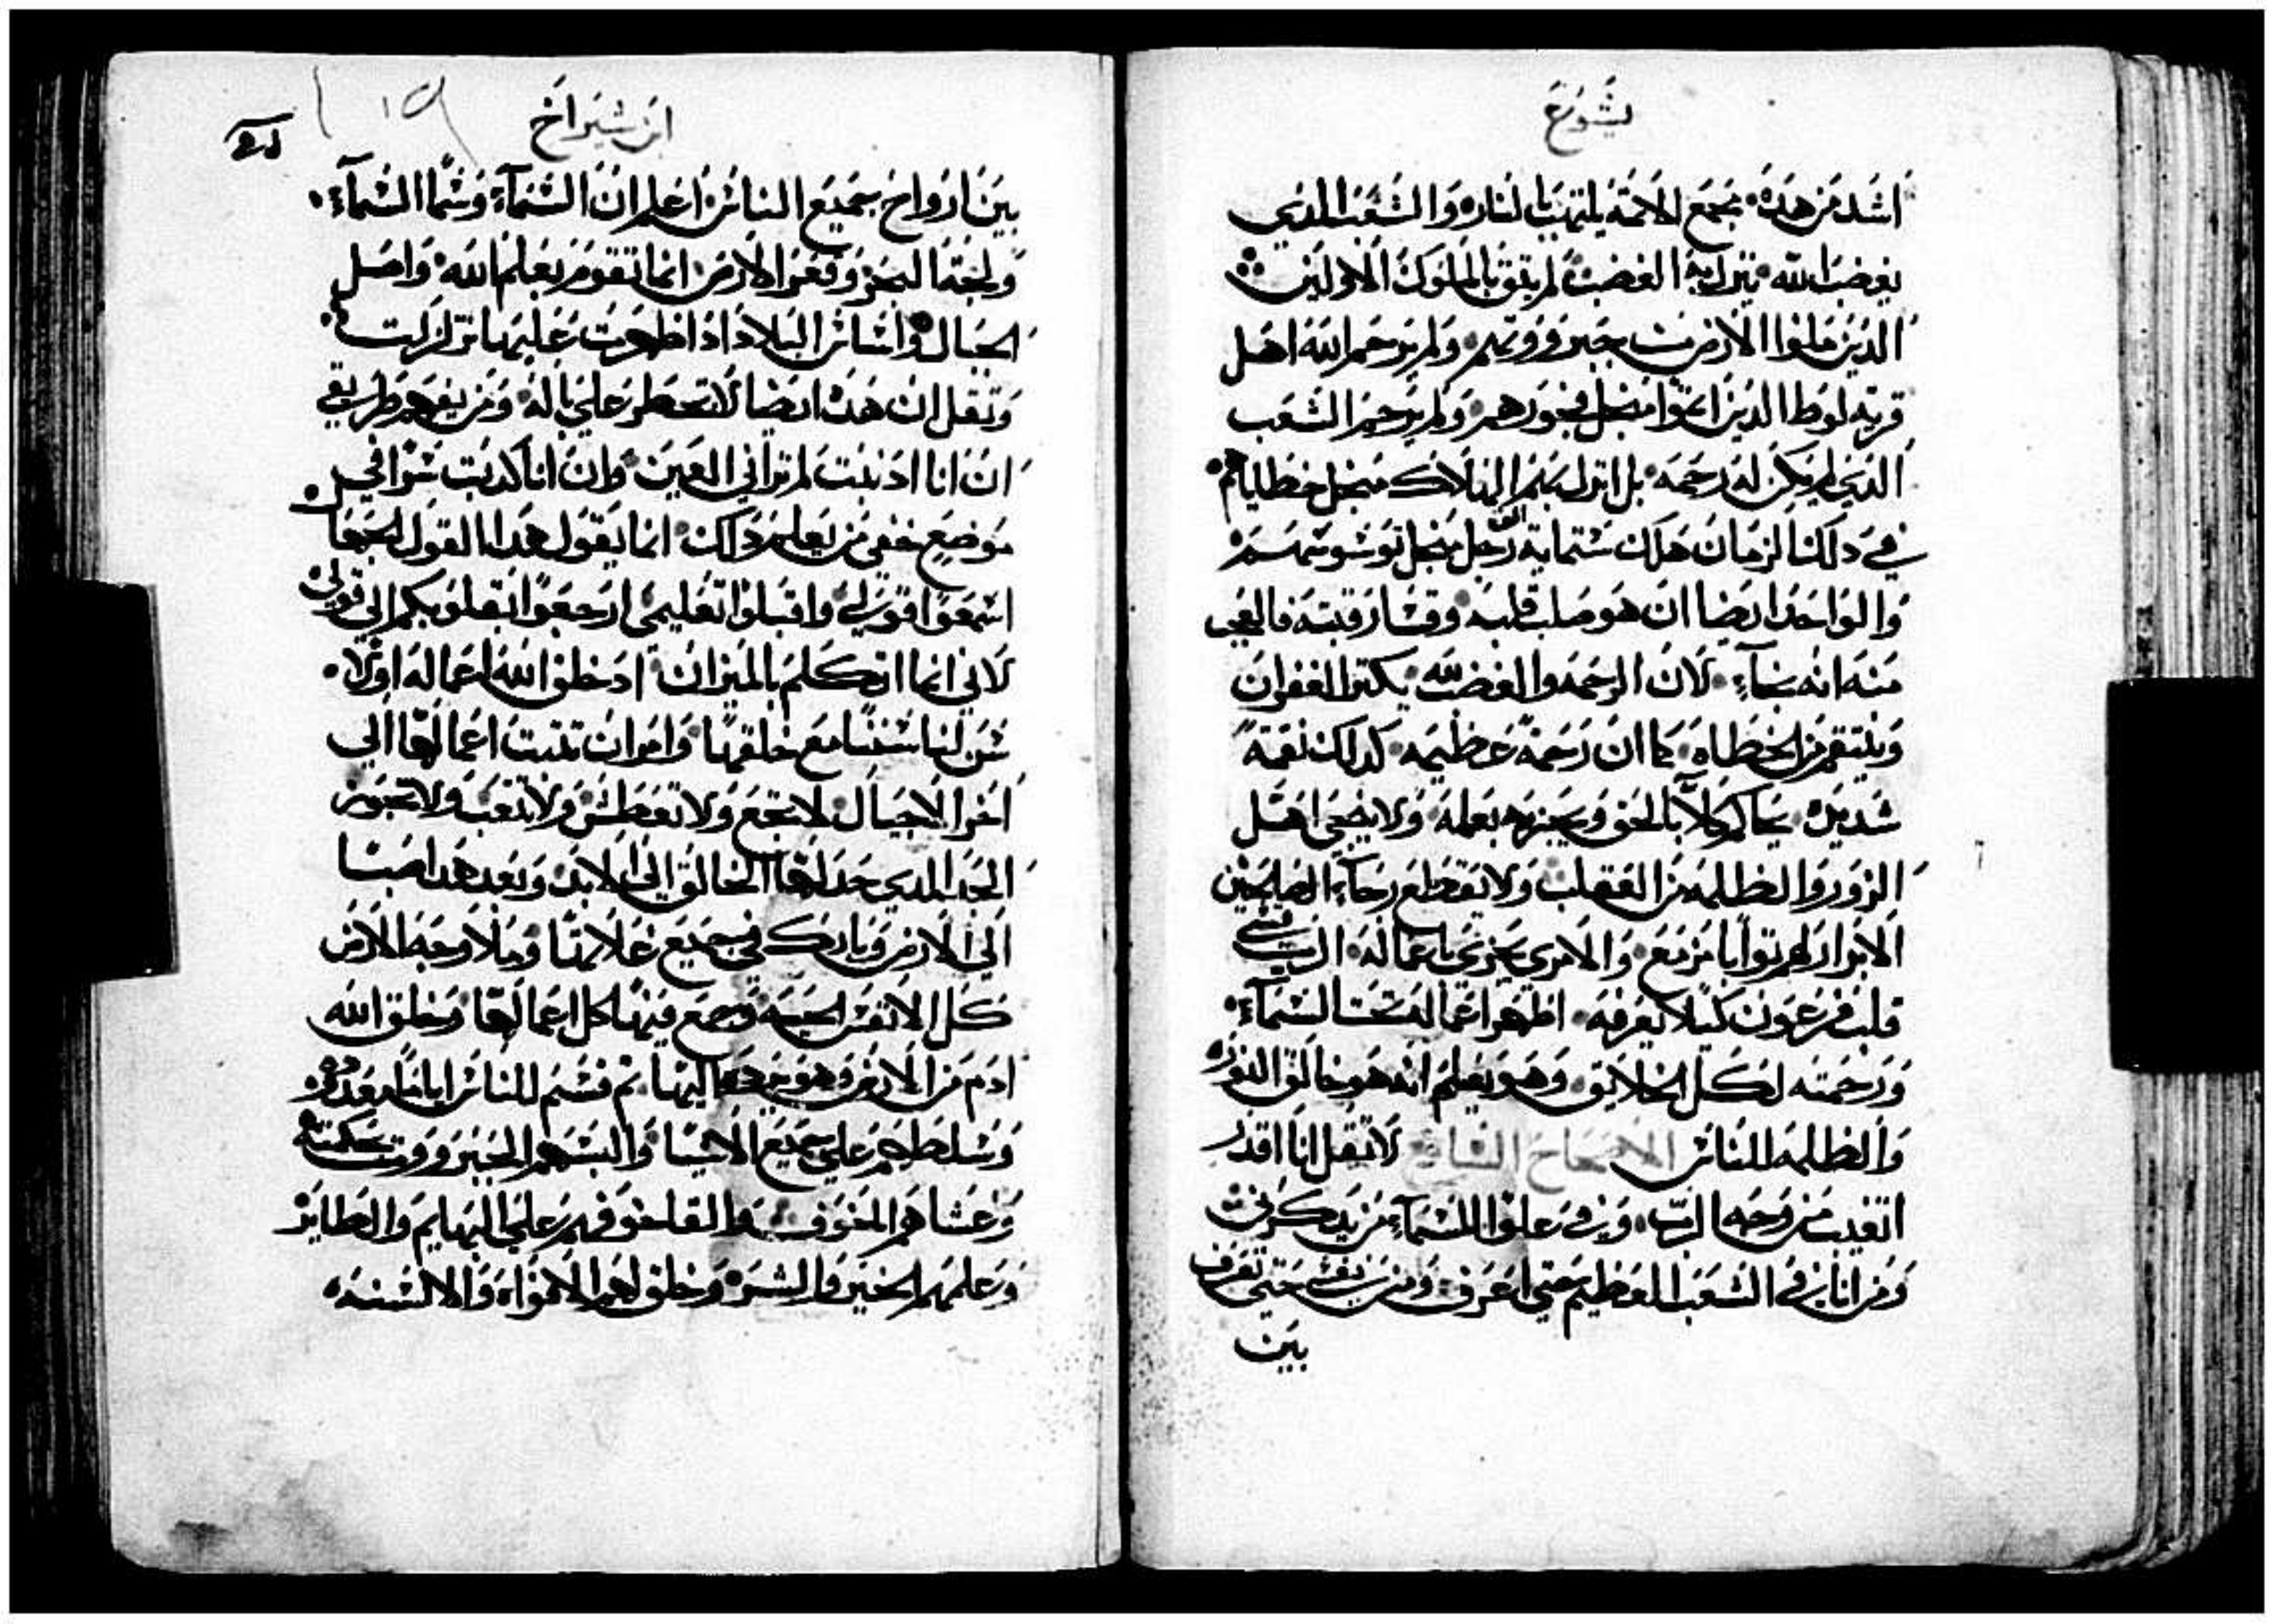 يشوع
اشد من هده. مجمع الاتمة يلتهب بالنار. والشعب الدي
يغضب الله. تنزل به الغضب. لم يبق بالملوك الاولين
الدين ملوا الارض من جبروتهم. ولم يرحم الله اهل
قرية لوط الدين اتموا منجل فجورهم. ولم يرحم الشعب
الدي لم يكن له رحمه. بل انزل بهم الهلاك منجل خطاياهم
في دلك الزمان هلك ستماية الف رجل منجل توشوشهم
والواحد ايضا ان هو صلب قلبه. وقسا رقبته فالعجب
منه انه نجاء. لان الرحمه والغضب لله. يكتر الغفران
وينتقم من الخطاه. كما ان رحمة عظيمه. كدلك نقمة
شديده. يحاكم كلا بالحق ويجزيه بعمله. ولا ينجي اهل
الزور والظلمه من العقاب ولا يقطع رجاء الصالحين
الابرار لهم توابا مزمع. والامري يجزي باعماله. الرب قسى
قلب فرعون كيلا يعرفه. اظهر اعماله تحت السماء.
ورحمته لكل الخلايق. وهو يعلم انه هو خالق النور.
والظلمه للناس الاصحاح السابع لا تقل انا اقدر
اتغيب من وجه الرب. ومن في علو السماء من يدكرني
ومن انا في الشعب العظيم حتى اعرف. ومن نفسي حتى تعرف
بين
ابن شيراخ
بين ارواح جميع الناس. اعلم ان السماء وسما السماء.
ولجة البحر وقعر الارض. انما تقوم بعلم الله. واصل
الجبال. واساس البلاد ادا ظهرت عليها تزلزلت
وتقل ان هده ايضا لا تخطر على باله. ومن يفهم طريقي
ان انا ادنبت لم تراني العين. وان انا كدبت سرا في
موضع خفي من يعلم دلك. انما يقول هدا القول الجها
اسمعوا قولي. واقبلوا تعليمي ارجعوا بقلوبكم الى قولي.
لاني انما اتكلم بالميزان. ادخلق الله اعماله اولا.
سن لنا سننا مع خلقتها. وامر ان تتبت اعمالها الى
اخر الاجيال. لا تجع ولا تعطش ولا تتعب ولا تجوز
الحد الدي حد لها الخالق الى الابد. وبعد هدا صبا
الى الارض وبارك في جميع غلاتها. وملا وجه الارض
كل الانفس الحيه. وصع فيها كل اعمالها. وخلق الله
ادم من الارض وهو يردها اليها. تم قسم للناس اياما معدوده.
وسلطهم على جميع الاشيا. والبسهم الجبروت بحكمته
وغشاهم المخوف والقا خوفهم على البهايم والطاير
وعلمهم الخير والشر. وخلق لهم الافواه والالسنه.